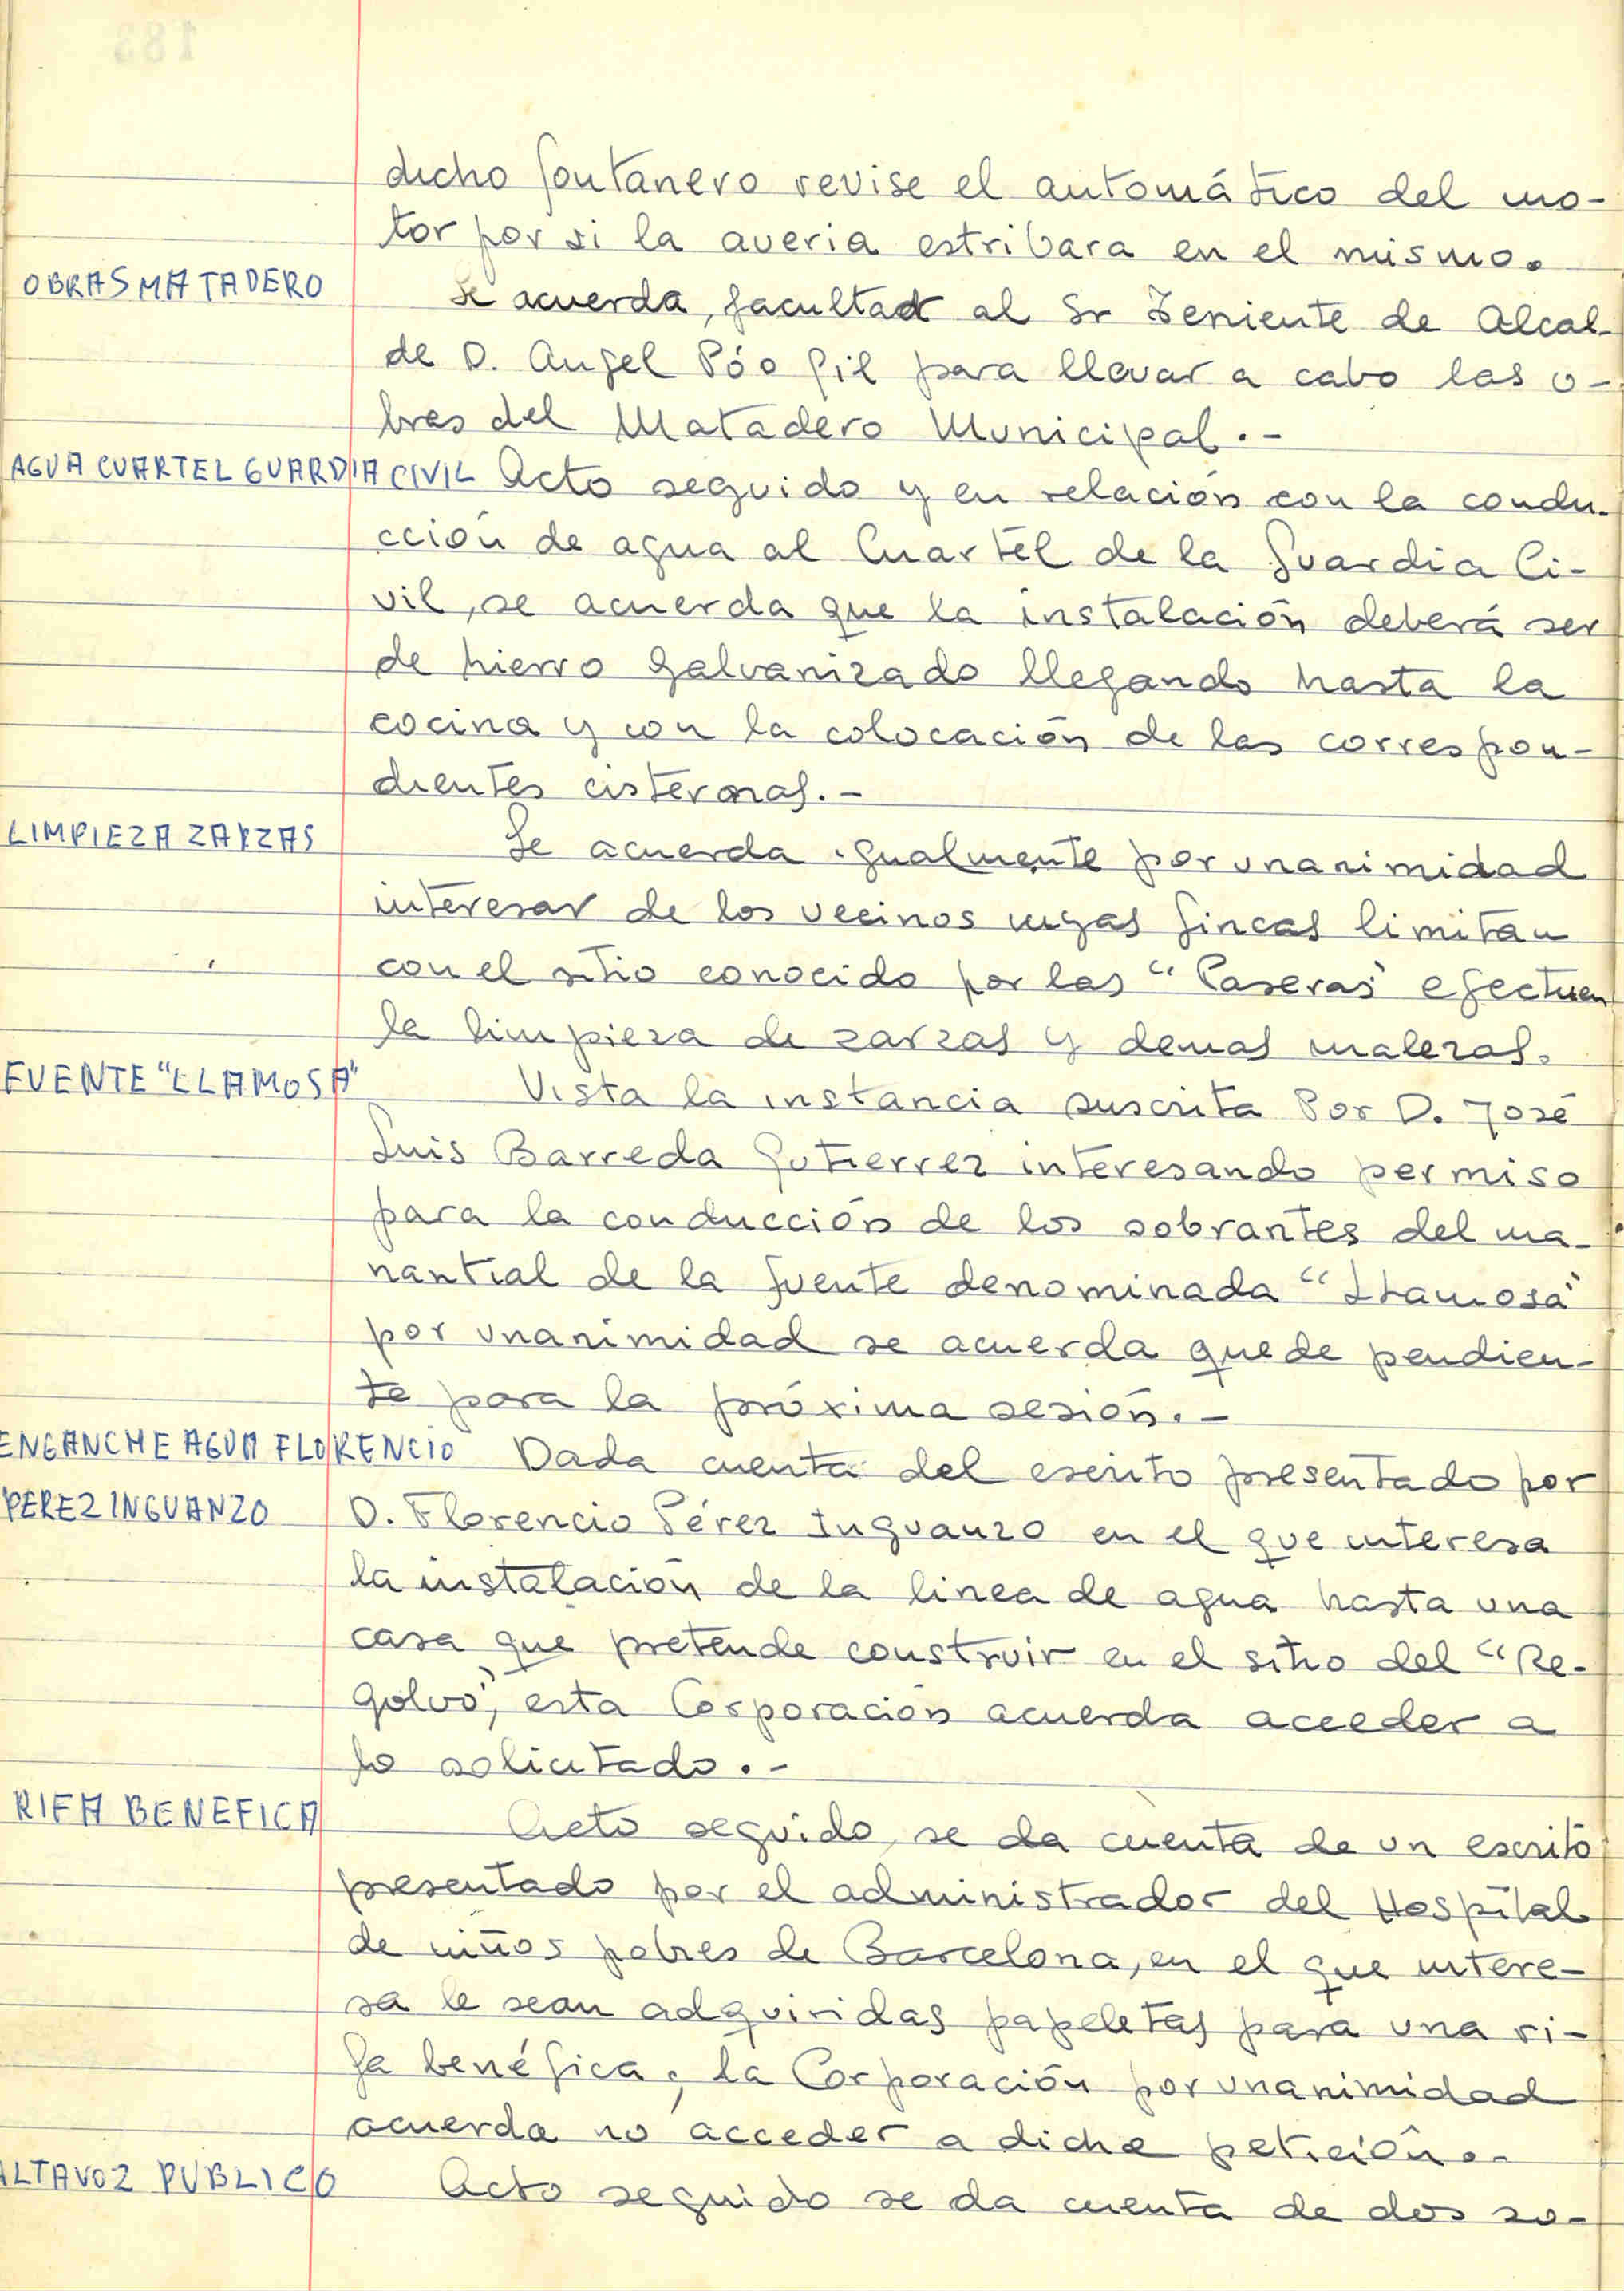 dicho fontanero revise el automático del mo-
tor por si la averia estribara en el mismo.
OBRAS MATADERO
Se acuerda, facultad al Sr Teniente de Alcal-
de D. Angel Póo Gil para llevar a cabo las o-
bras del Matadero Municipal.-
AGUA CUARTEL GUARDIA CIVIL Acto seguido y en relación con la condu-
cción de agua al Cuartel de la Guardia Ci-
vil, se acuerda que la instalación deberá ser
de hierro galvanizado llegando hasta la
cocina y con la colocación de las correspon-
dientes cisternas.-
LIMPIEZA ZARZAS
Se acuerda igualmente por unanimidad
interesar de los vecinos cuyas fincas limitan
con el sitio conocido por las "Caseras" efectuen
la limpieza de zarzas y demas malezas.
FUENTE "LLAMOSA"
Vista la instancia suscrita Por D. José
Luis Barreda Gutierrez interesando permiso
para la conducción de los sobrantes del ma-
nantial de la fuente denominada "Llamosa"
por unanimidad se acuerda quede pendien-
te para la próxima sesión.-
ENGANCHE AGUA FLORENCIO Dada cuenta del escrito presentado por
PEREZ INGUANZO D. Florencio Pérez Inguanzo en el que interesa
la instalación de la linea de agua hasta una
casa que pretende construir en el sitio del "Re-
golvo", esta Corporación acuerda acceder a
lo solicitado.-
RIFA BENEFICA
Acto seguido, se da cuenta de un escrito
presentado por el administrador del Hospital
de niños pobres de Barcelona, en el que intere-
sa le sean adquiridas papeletas para una ri-
fa benéfica; la Corporación por unanimidad
acuerda no acceder a dicha petición.-
ALTAVOZ PUBLICO Acto seguido se da cuenta de dos so-